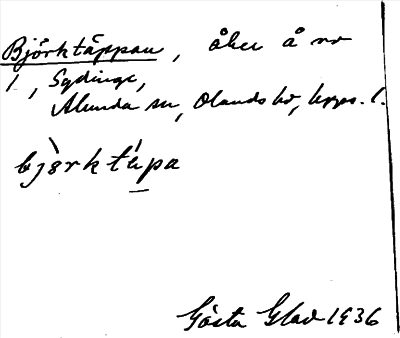 Björktäppan, åker å nr
1, Sydinge,
Alunda sn, Olands hd, Upps. l.
bjòrktápa
Gösta Glad 1936